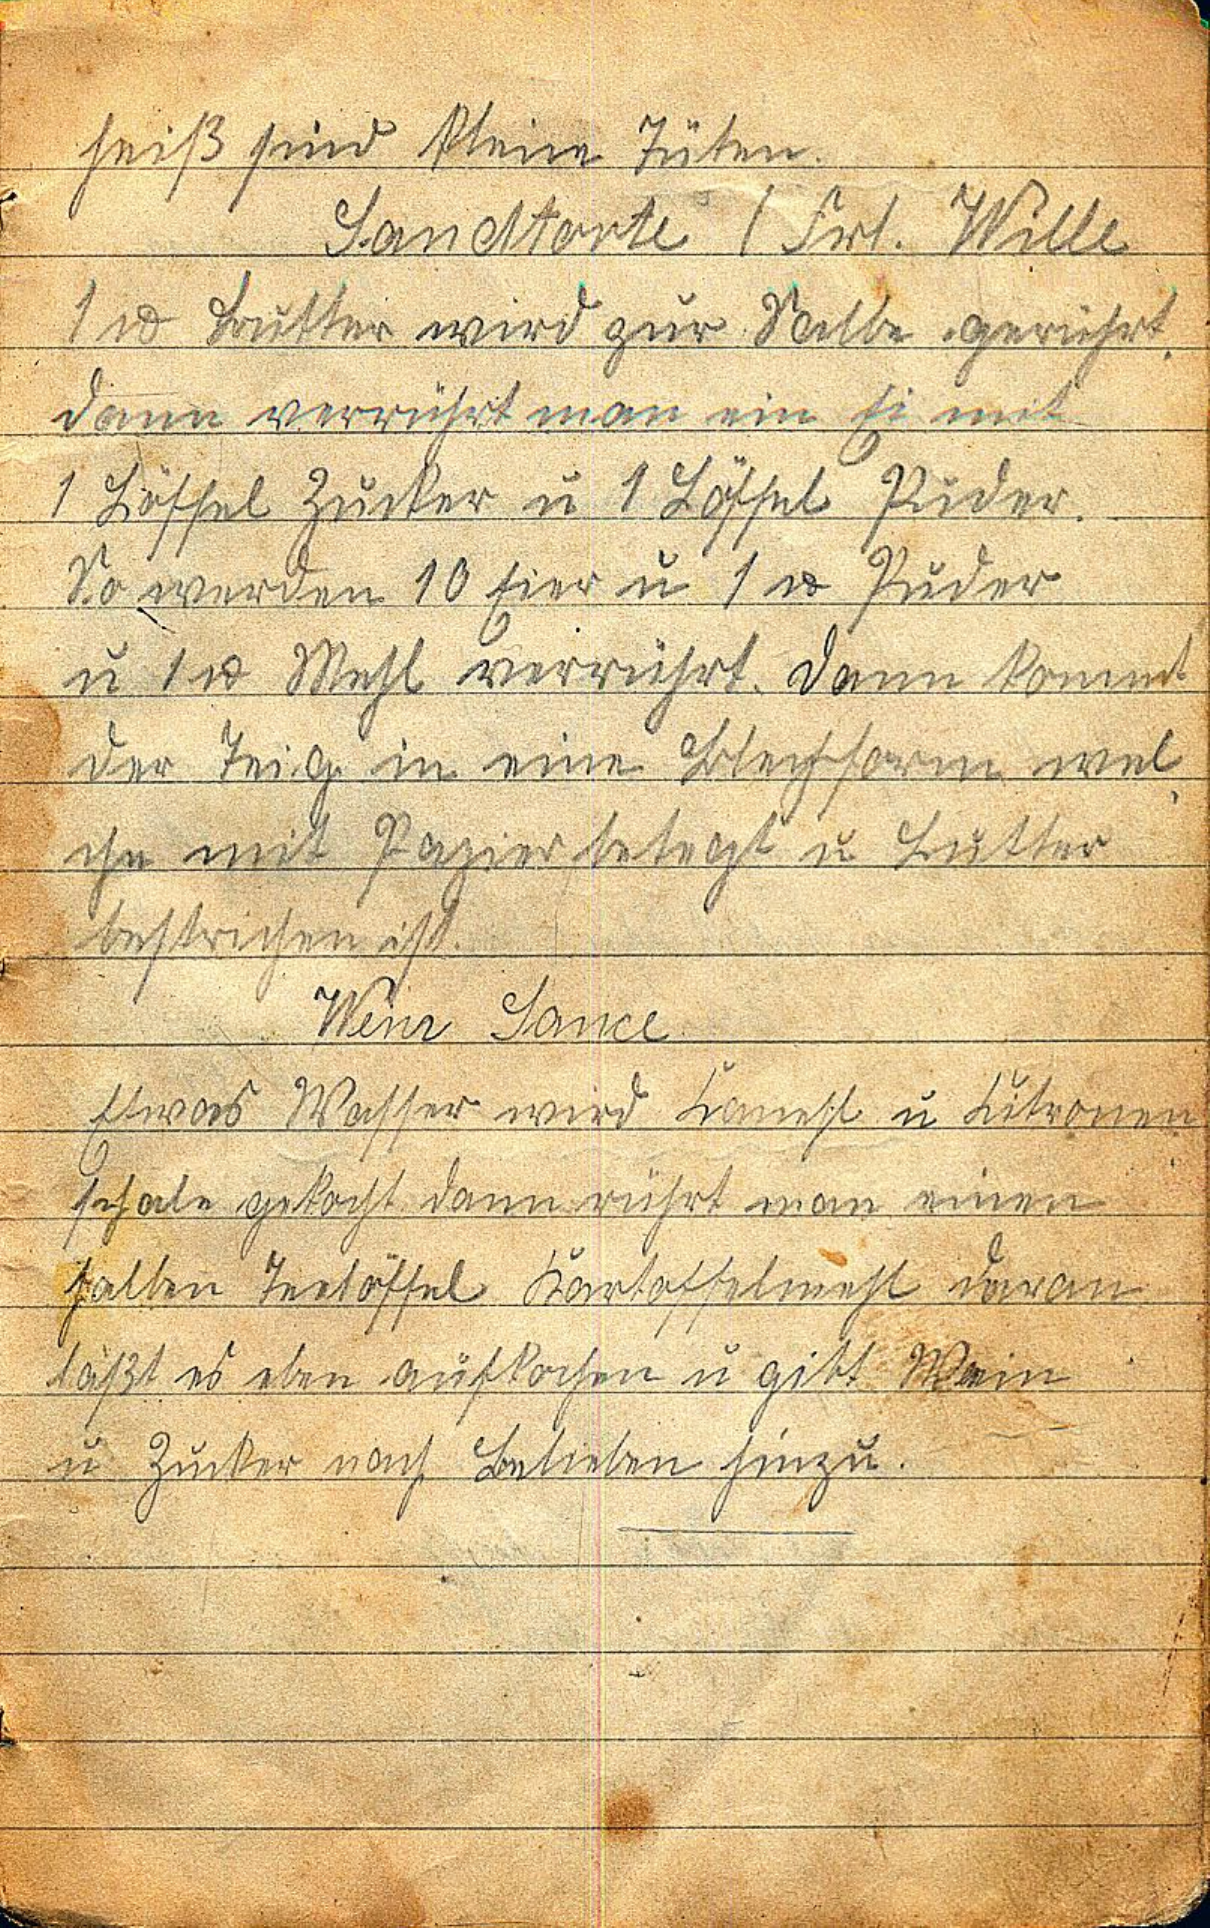 heiß sind kleine Tüten.
Sandtorte (Frl. Wille
1 ℔ Butter wird zur Salbe gerührt,
dann verrührt man ein Ei mit
1 Löffel Zucker u 1 Löffel Puder.
So werden 10 Eier u 1 ℔ Puder
u 1 ℔ Mehl verrührt. Dann kommt
der Teig in eine Blechform wel
che mit Papier belegt u Butter
bestrichen ist.
Wein Sauce
Etwas Wasser wird Kanehl u Zitronen
schale gekocht dann rührt man einen
halben Teelöffel Kartoffelmehl daran
läßt es eben aufkochen u gibt Wein
u Zucker nach Belieben hinzu.